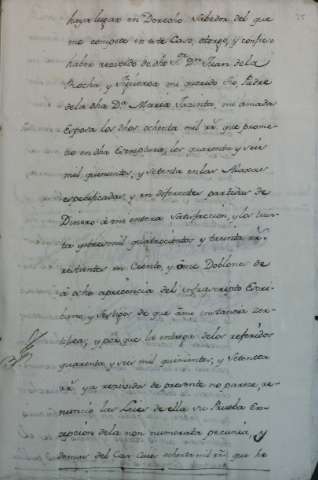 haya lugar en Derecho Sabedor del que
me compete en este Caso, otorgo, y confieso
haber recevido de dho Sr. Dn. Juan de la
Rocha y Figueroa mi querido Tio Padre
de la dha Da. Maria Jacinta, mi amada
Esposa los dhos ochenta mil rs. que prome-
tio en dha Escriptura, los quarenta y seis
mil quinientos, y setenta en las Alaxas
especificadas, y en diferentes partidas de
Dinero á mi entera Satisfaccion, y los trein-
ta y tres mil quatrocientos y treinta rs.
restantes en Ciento, y Doblones de
á ocho apresencia del infrascripto Escri-
bano, y testigos de que
y por que la entrega de los referidos
quarenta y seis mil quinientos, y Setenta
rs. ya recividos de presente no parece, re-
nuncio las Leies de ella su Prueba Ex-
cepcion de la non numerata pecunia, y
demas del Caso Cuios ochenta mil rs. que he